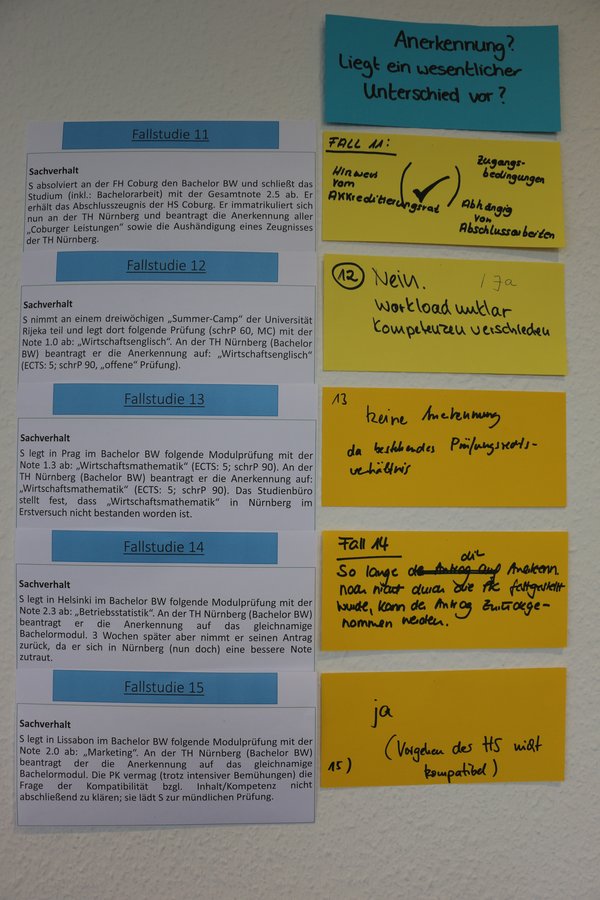 Anerkennung?
Liegt ein wesentlicher
Unterschied vor?
Fallstudie 11
Sachverhalt
S absolviert an der FH Coburg den Bachelor BW und schließt das
Studium (inkl.: Bachelorarbeit) mit der Gesamtnote 2.5 ab. Er
erhält das Abschlusszeugnis der HS Coburg. Er immatrikuliert sich
nun an der TH Nürnberg und beantragt die Anerkennung aller
„Coburger Leistungen“ sowie die Aushändigung eines Zeugnisses
der TH Nürnberg.
FALL 11:
Hinweis
vom
Akkreditierungsrat
Zugangs-
bedingungen
Abhängig
von
Abschlussarbeiten
Fallstudie 12
Sachverhalt
S nimmt an einem dreiwöchigen „Summer-Camp“ der Universität
Rijeka teil und legt dort folgende Prüfung (schrP 60, MC) mit der
Note 1.0 ab: „Wirtschaftsenglisch“. An der TH Nürnberg (Bachelor
BW) beantragt er die Anerkennung auf: „Wirtschaftsenglisch“
(ECTS: 5; schrP 90, „offene“ Prüfung).
12 Nein. / Ja
Workload unklar
Kompetenzen verschieden
Fallstudie 13
Sachverhalt
S legt in Prag im Bachelor BW folgende Modulprüfung mit der
Note 1.3 ab: „Wirtschaftsmathematik“ (ECTS: 5; schrP 90). An der
TH Nürnberg (Bachelor BW) beantragt er die Anerkennung auf:
„Wirtschaftsmathematik“ (ECTS: 5; schrP 90). Das Studienbüro
stellt fest, dass „Wirtschaftsmathematik“ in Nürnberg im
Erstversuch nicht bestanden worden ist.
13
keine Anerkennung
da bestehendes Prüfungsrechts-
verhältnis
Fallstudie 14
Sachverhalt
S legt in Helsinki im Bachelor BW folgende Modulprüfung mit der
Note 2.3 ab: „Betriebsstatistik“. An der TH Nürnberg (Bachelor BW)
beantragt er die Anerkennung auf das gleichnamige
Bachelormodul. 3 Wochen später aber nimmt er seinen Antrag
zurück, da er sich in Nürnberg (nun doch) eine bessere Note
zutraut.
Fall 14
So lange der Antrag auf die Anerkenn.
noch nicht durch die PK festgestellt
wurde, kann der Antrag zurückge-
nommen werden.
Fallstudie 15
Sachverhalt
S legt in Lissabon im Bachelor BW folgende Modulprüfung mit der
Note 2.0 ab: „Marketing“. An der TH Nürnberg (Bachelor BW)
beantragt der die Anerkennung auf das gleichnamige
Bachelormodul. Die PK vermag (trotz intensiver Bemühungen) die
Frage der Kompatibilität bzgl. Inhalt/Kompetenz nicht
abschließend zu klären; sie lädt S zur mündlichen Prüfung.
ja
(Vorgehen des HS nicht
15) kompatibel)